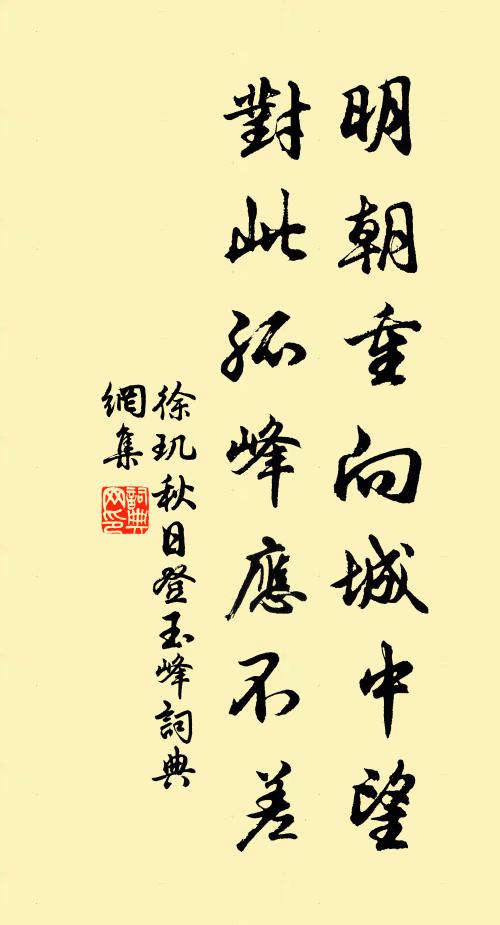 明朝重向城中望
對此孤峰應不差
徐玑秋日登玉峰詞典
網集
詞典网印